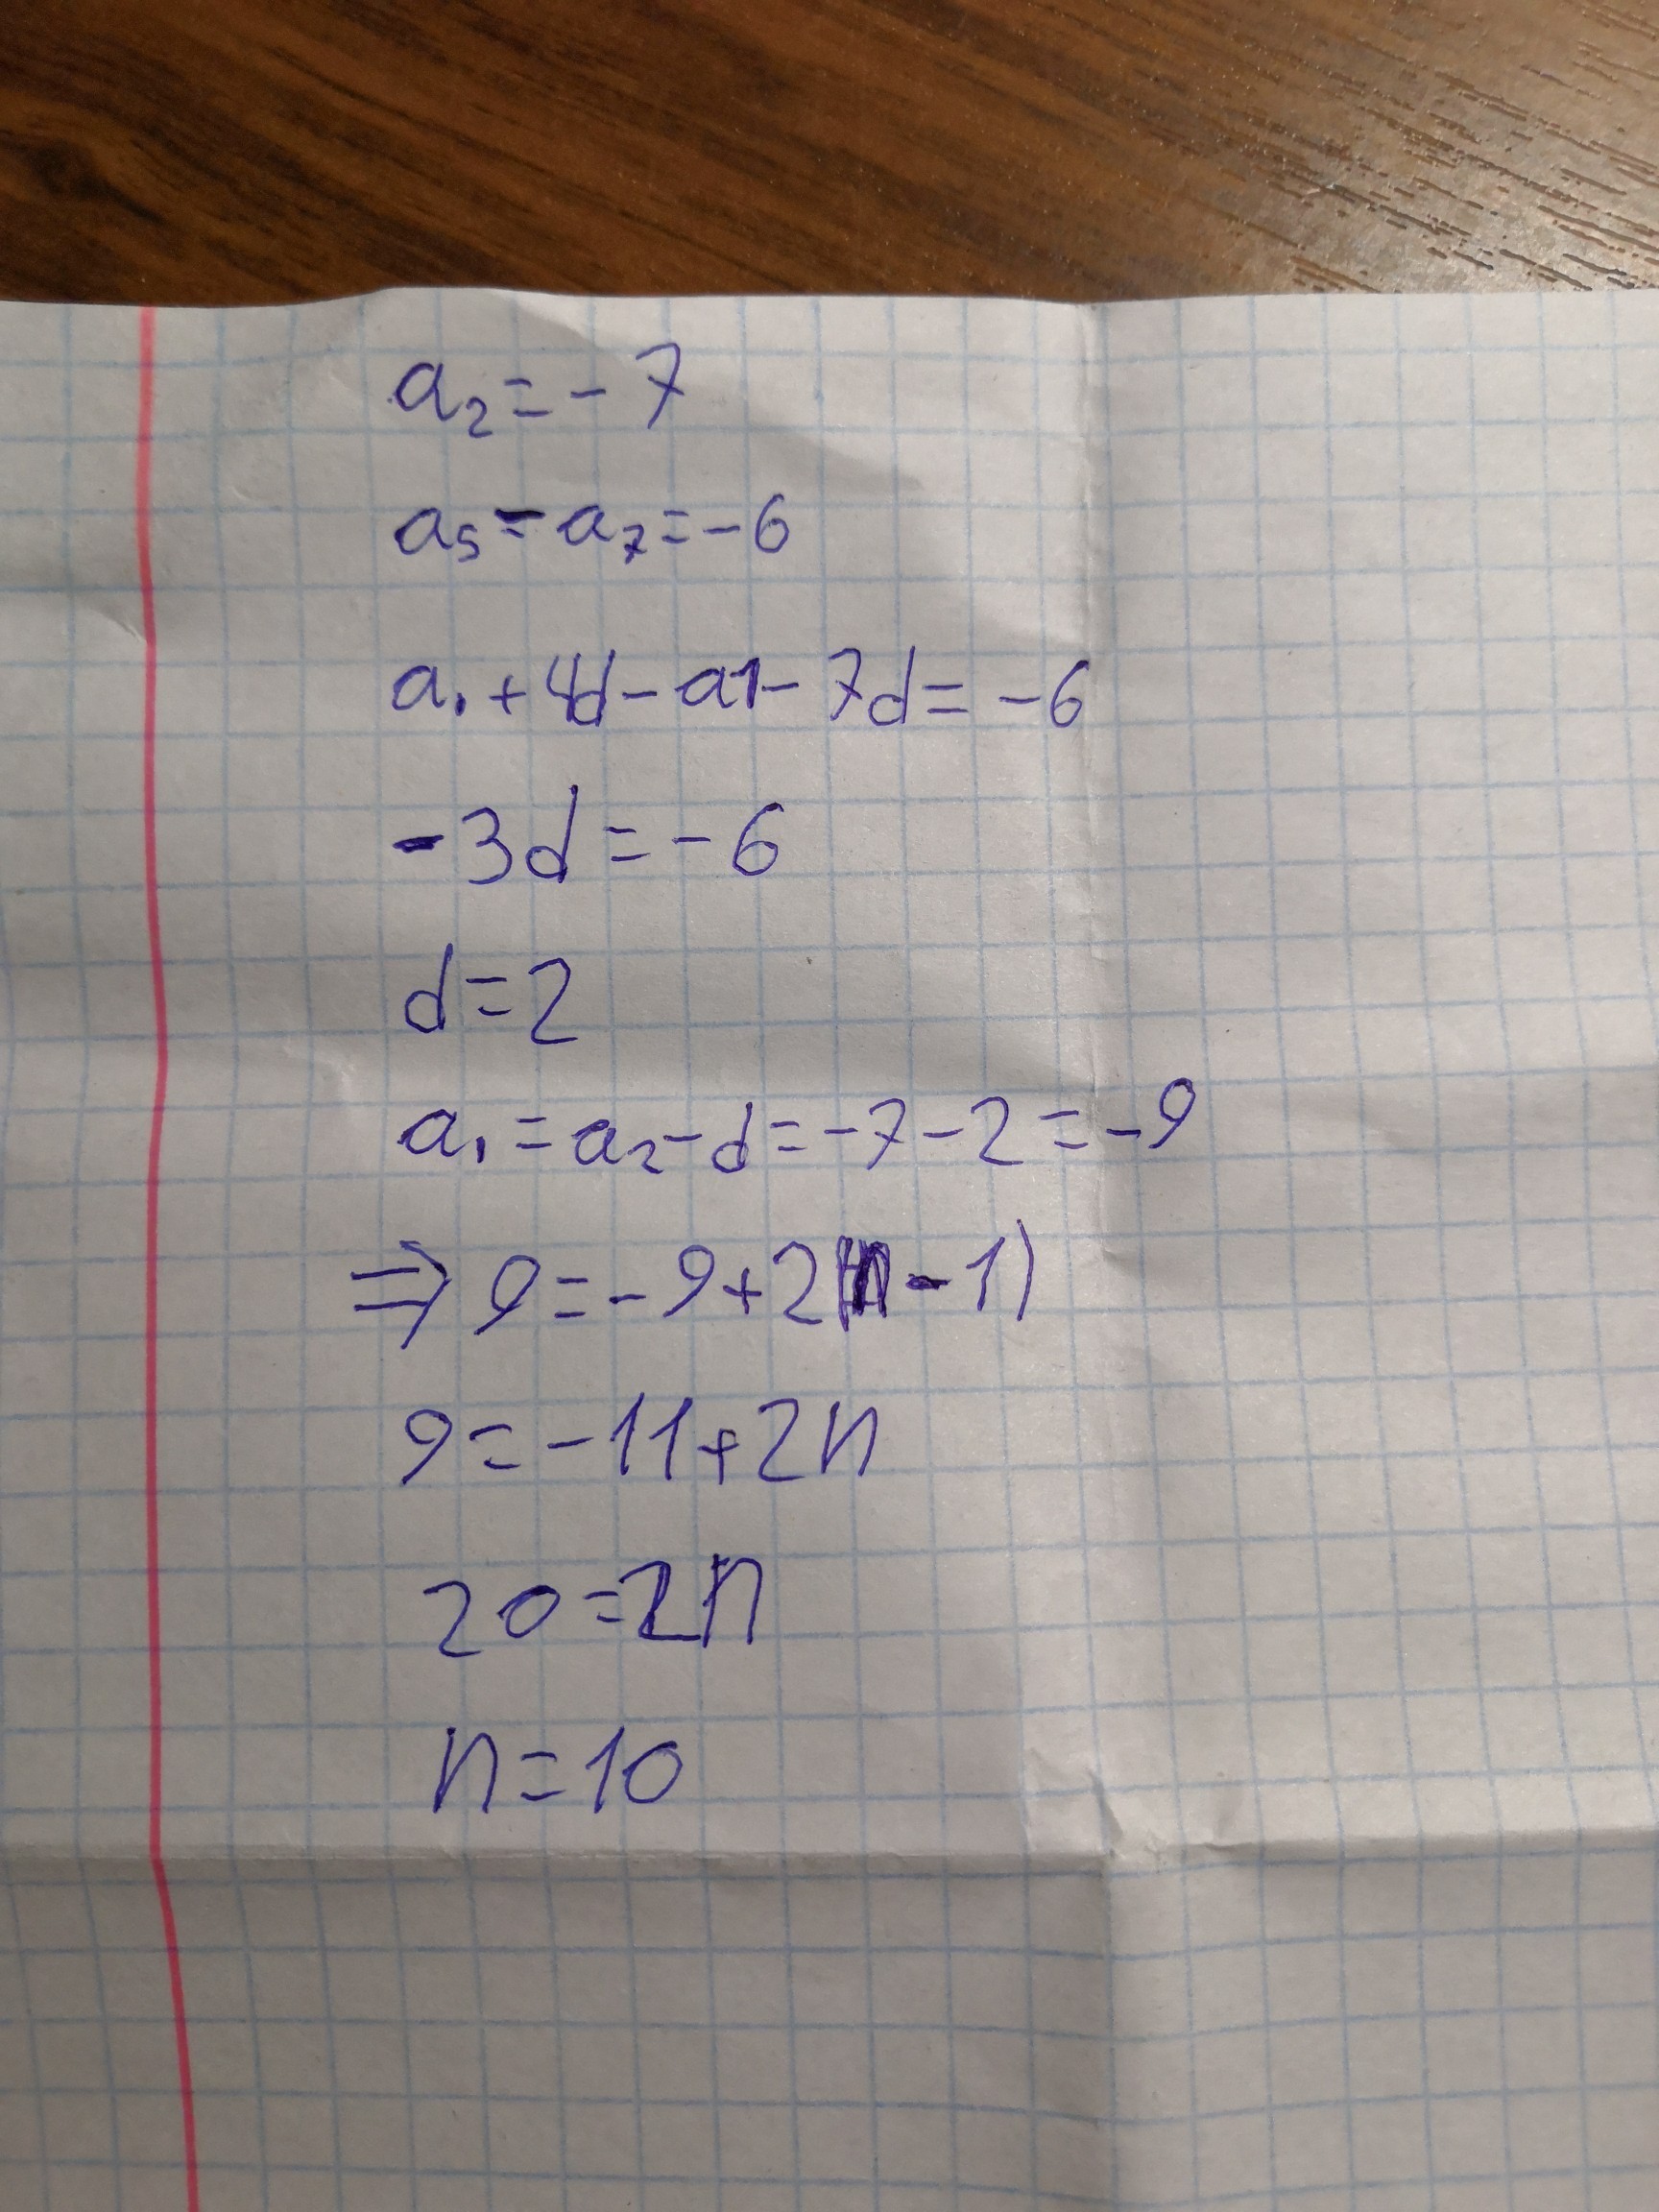 a₂ = - 7
a₅ - a₇ = -6
a₁ + 4d - a1 - 7d = -6
-3d = -6
d = 2
a₁ = a₂ - d = -7 - 2 = -9
⇒ 9 = -9 + 2(n - 1)
9 = -11 + 2n
20 = 2n
n = 10